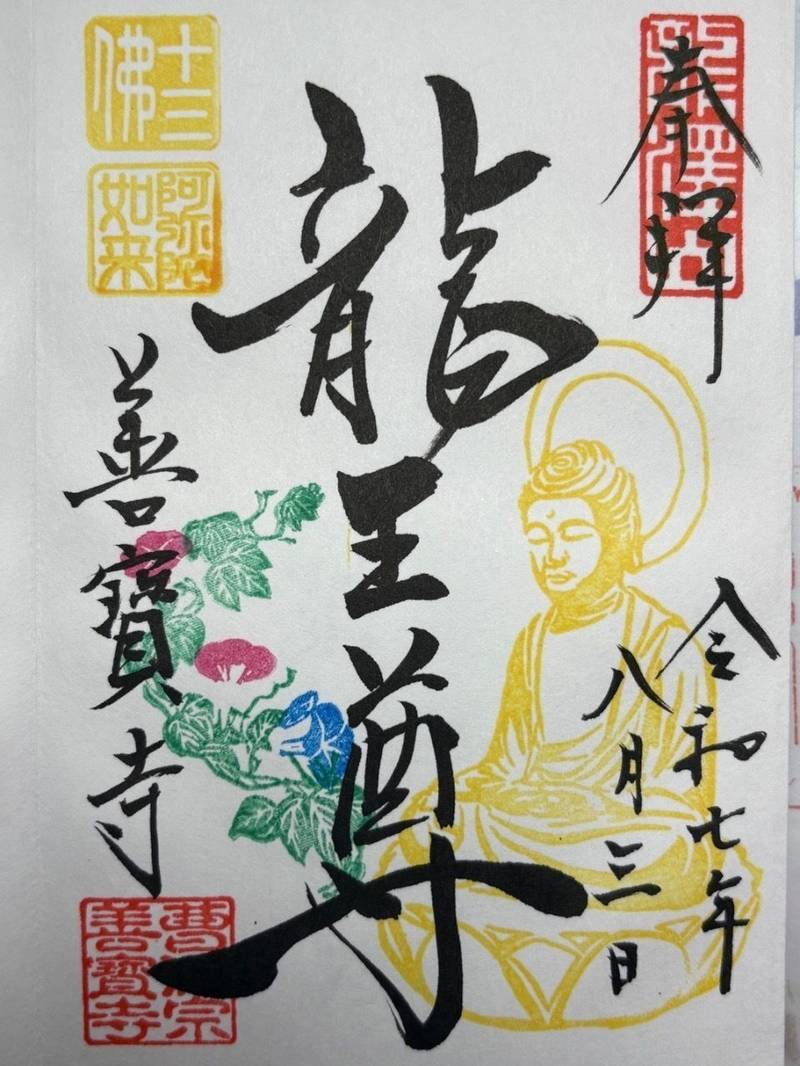 奉拝
令和七年
八月三日
龍王尊
十三佛
阿弥陀如来
善寶寺
曹洞宗
善寶寺